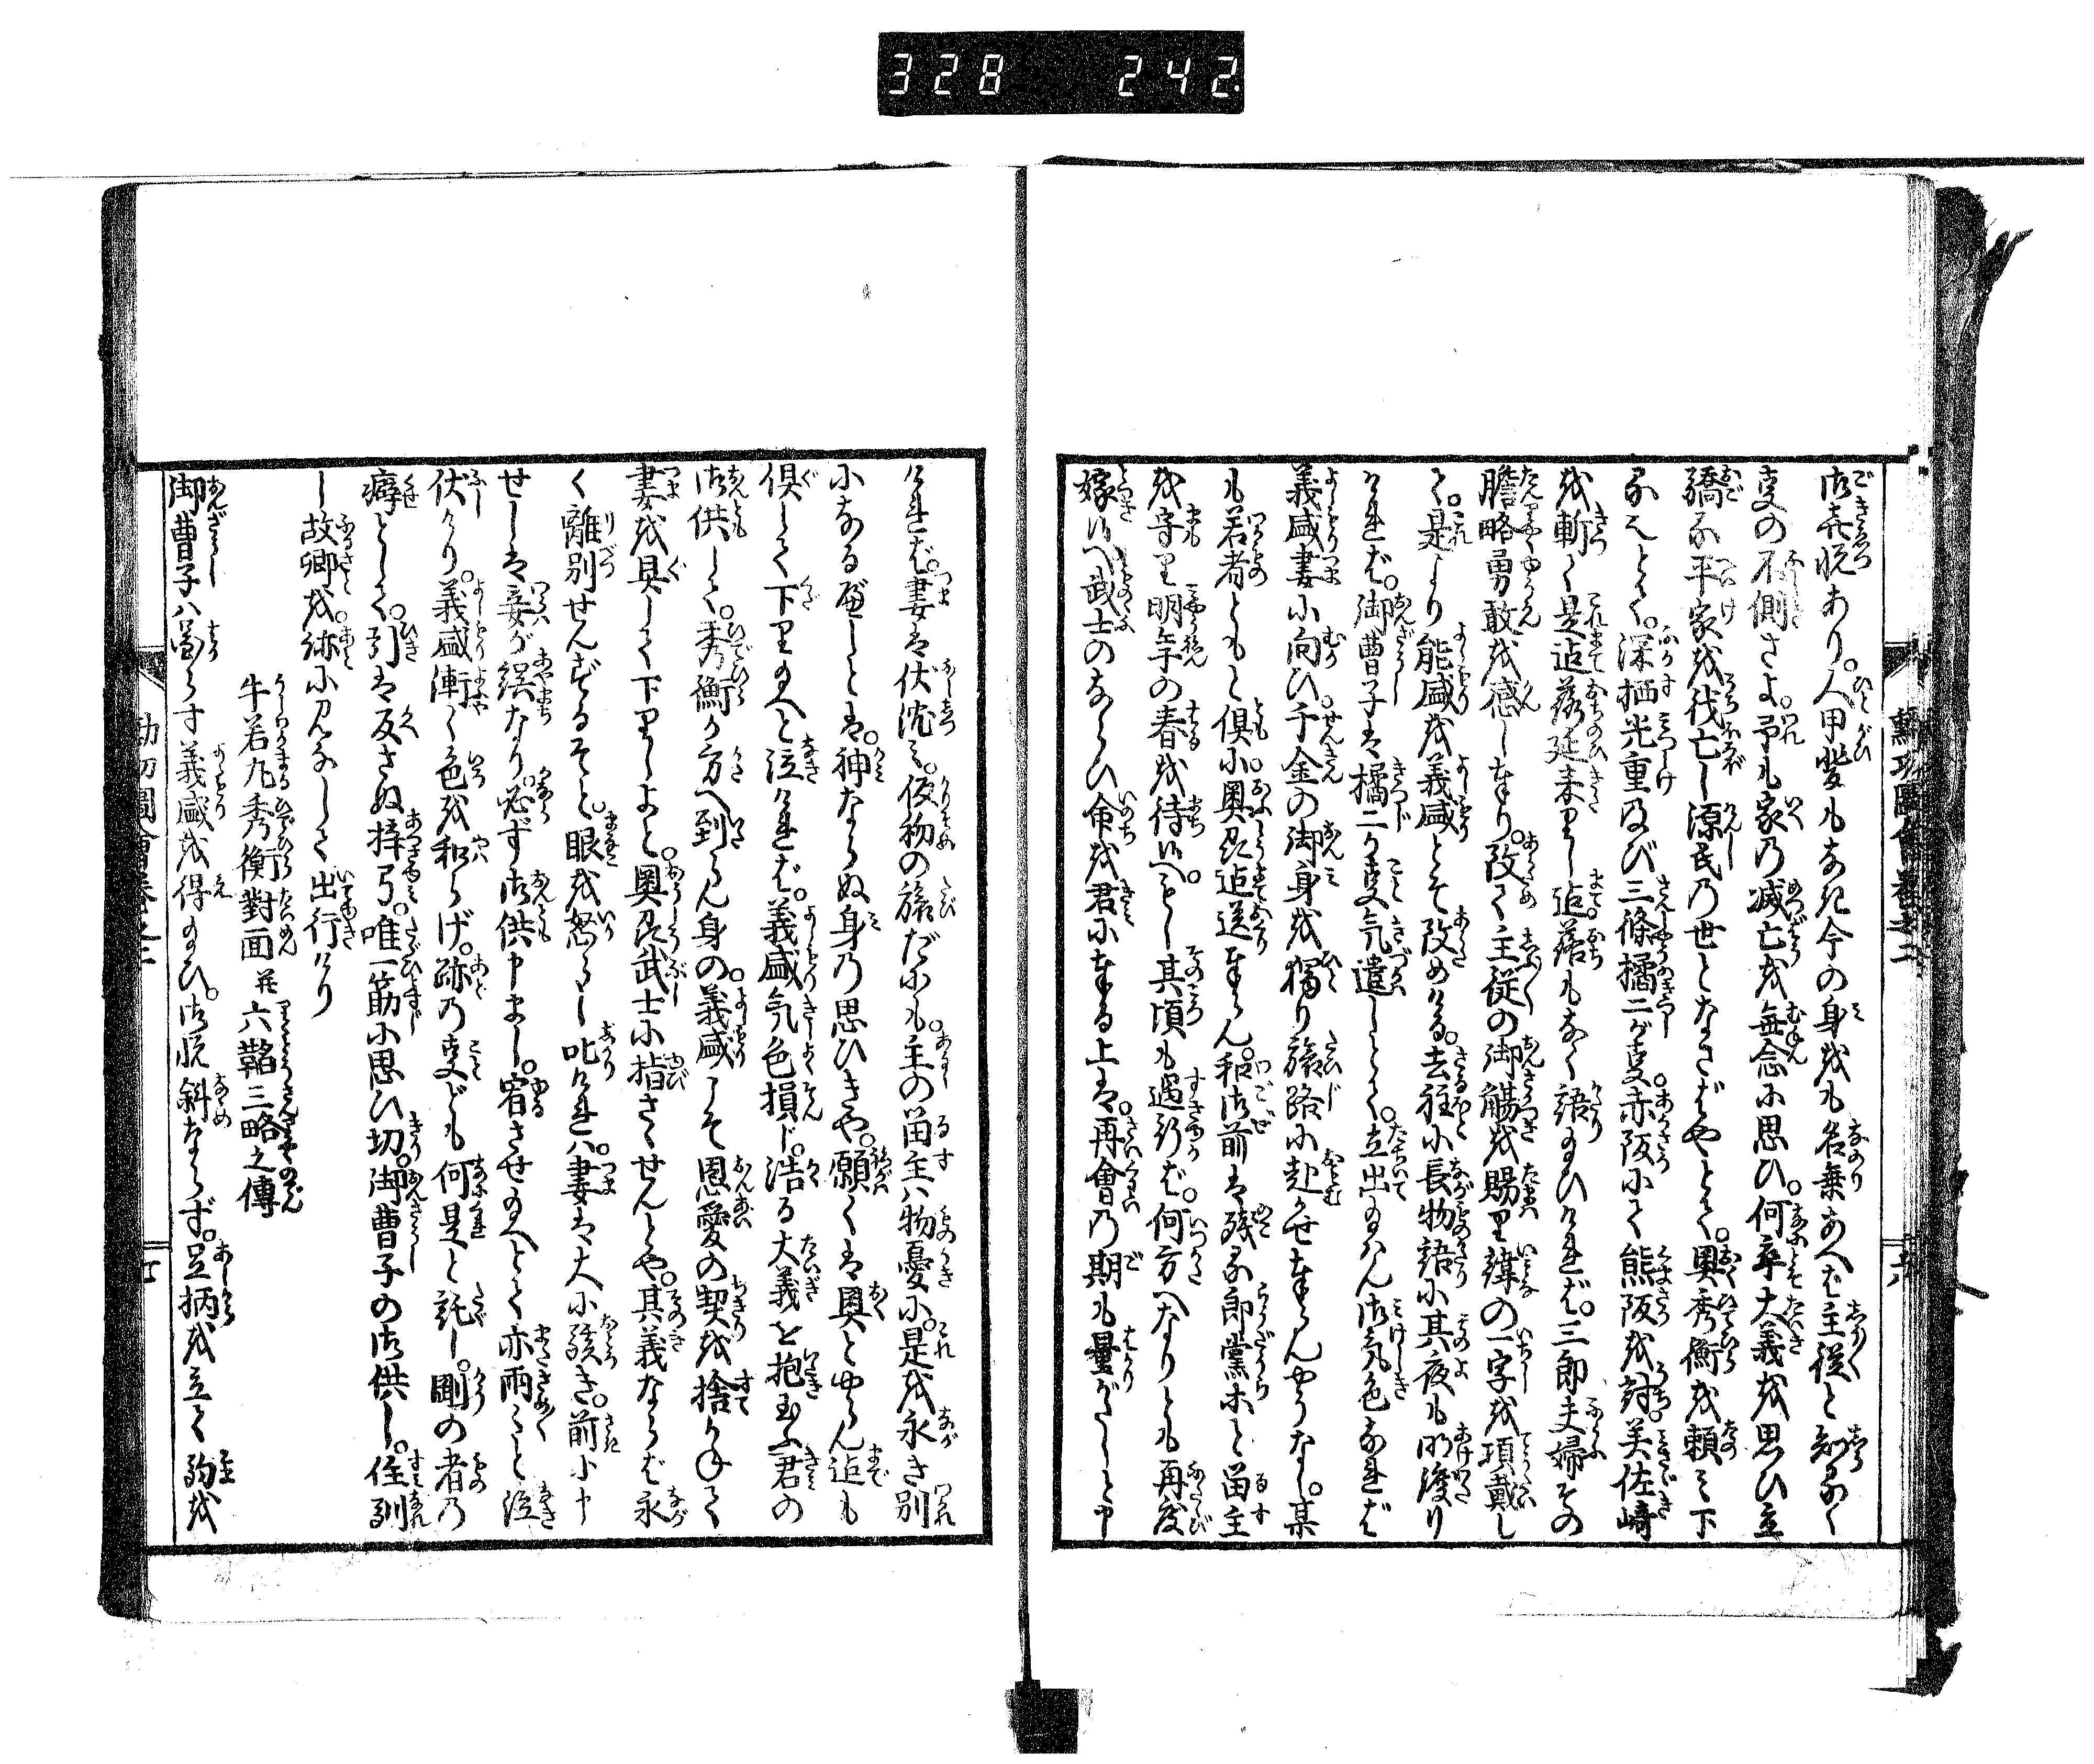 328 242
御喜悦あり。人甲斐もなき今の身をも名乗あへば主従と知るく
事の不側さよ。予も家の滅亡を無念に思ひ。何卒大義を思ひ立
驕る平家を伐亡し源氏の世となさばやとて。奥秀衡を頼み下
るとて。深栖光重及び三條橘二が事赤阪にて熊阪を討。美佐崎
を斬て是迄落延来りし迄。落もなく語り給ひければ。三郎夫婦その
膽略勇敢を感じ奉り。改て主従の御觴を賜り諱の一字を頂戴し
て。是より能盛を義盛とぞ改めける。去程に長物語に其夜も明渡り
ければ。御曹子は橘二が事気遣しとて。立出給はん御気色なれば
義盛妻に向ひ千金の御身を獨り旅路に赴かせ奉らんやうなし。某
も若者ともと倶に。奥迄送り奉らん。和御前は残る郎黨等と留主
を守り明年の春を待候へ。もし其頃も過行ば。何方へなりとも再度
嫁候へ武士のならひ命を君に奉る上は。再會の期も量がたしと申
ければ。妻は伏沈み。仮初の旅だにも。主の留主は物憂に。是を永き別
になるべしとは。神ならぬ身の思ひきや。願くは奥とやらん迄も
倶して下り給へと泣ければ。義盛気色損じ。浩る大義を抱給ふ君の
御供して。秀衡が方へ到らん身の。義盛こそ恩愛の契を捨かねて
妻を具して下りしよと。奥武士に指さゝせんとや。其義ならば永
く離別せんずるぞと。眼を怒らし叱ければ。妻は大に駭き。前に申
せしは妾が誤なり。必ず御供申まじ。宥させ給へとて亦雨々と泣
伏けり。義盛漸く色を和らげ。跡の事ども何是と託し。剛の者の
癖として。引は反さぬ梓弓。唯一筋に思ひ切。御曹子の御供し。住馴
し故郷を。跡に見なして出行けり
牛若丸秀衡對面並六韜三略之傳
御曹子ハ図らず義盛を得給ひ。御悦斜ならず。足柄を立て駒を